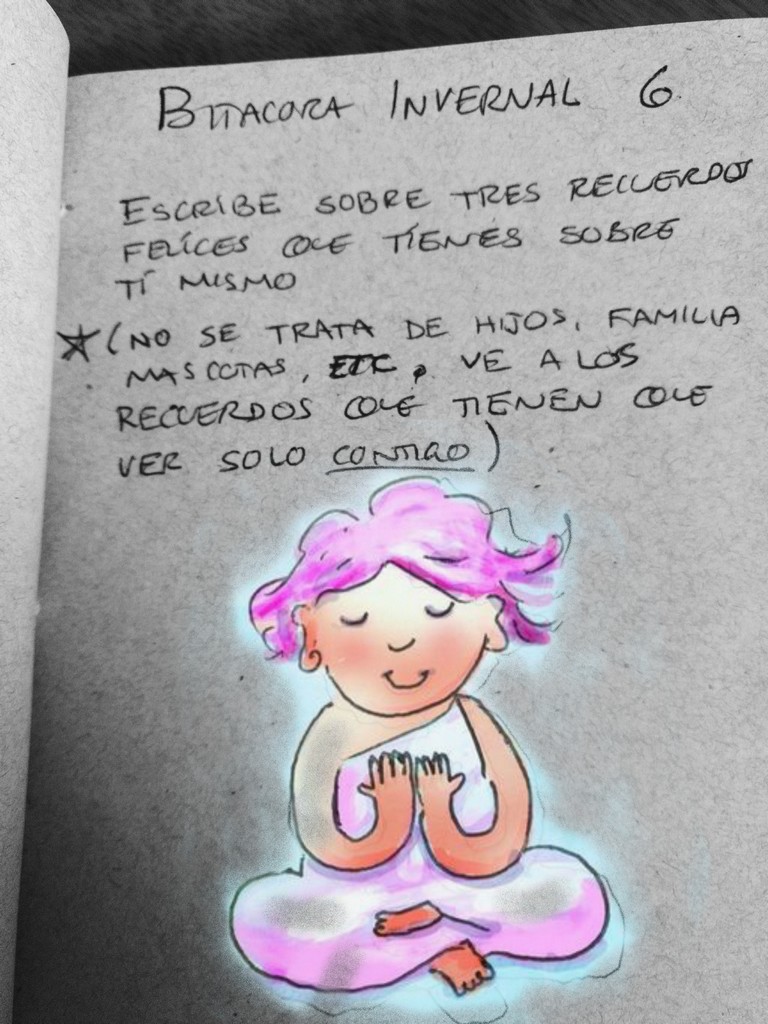 BITACORA INVERNAL 6
ESCRIBE SOBRE TRES RECUERDOS
FELICES QUE TIENES SOBRE
TÍ MISMO
(NO SE TRATA DE HIJOS, FAMILIA
MASCOTAS, ETC, VE A LOS
RECUERDOS QUE TIENEN QUE
VER SOLO CONTIGO)